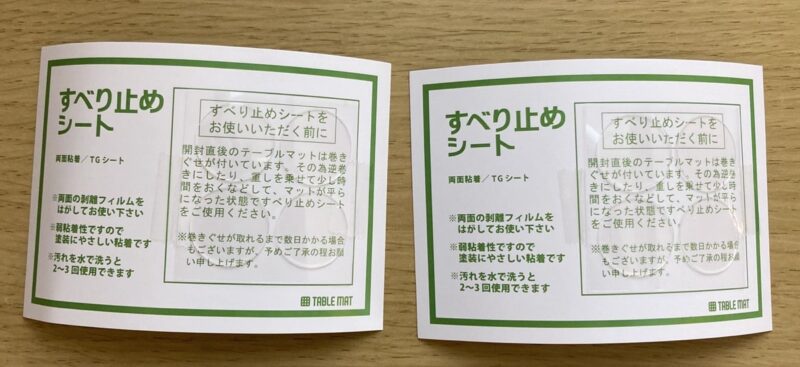 すべり止め
シート
両面粘着／TGシート
※両面の剥離フィルムを
はがしてお使い下さい
※弱粘着性ですので
塗装にやさしい粘着です
※汚れを水で洗うと
2〜3回使用できます
すべり止めシートを
お使いいただく前に
開封直後のテーブルマットは巻き
ぐせが付いています。その為逆巻
きにしたり、重しを乗せて少し時
間をおくなどして、マットが平ら
になった状態ですべり止めシート
をご使用ください。
※巻きぐせが取れるまで数日かかる場合
もございますが、予めご了承の程お願
い申し上げます。
TABLE MAT
すべり止め
シート
両面粘着／TGシート
※両面の剥離フィルムを
はがしてお使い下さい
※弱粘着性ですので
塗装にやさしい粘着です
※汚れを水で洗うと
2〜3回使用できます
すべり止めシートを
お使いいただく前に
開封直後のテーブルマットは巻き
ぐせが付いています。その為逆巻
きにしたり、重しを乗せて少し時
間をおくなどして、マットが平ら
になった状態ですべり止めシート
をご使用ください。
※巻きぐせが取れるまで数日かかる場合
もございますが、予めご了承の程お願
い申し上げます。
TABLE MAT